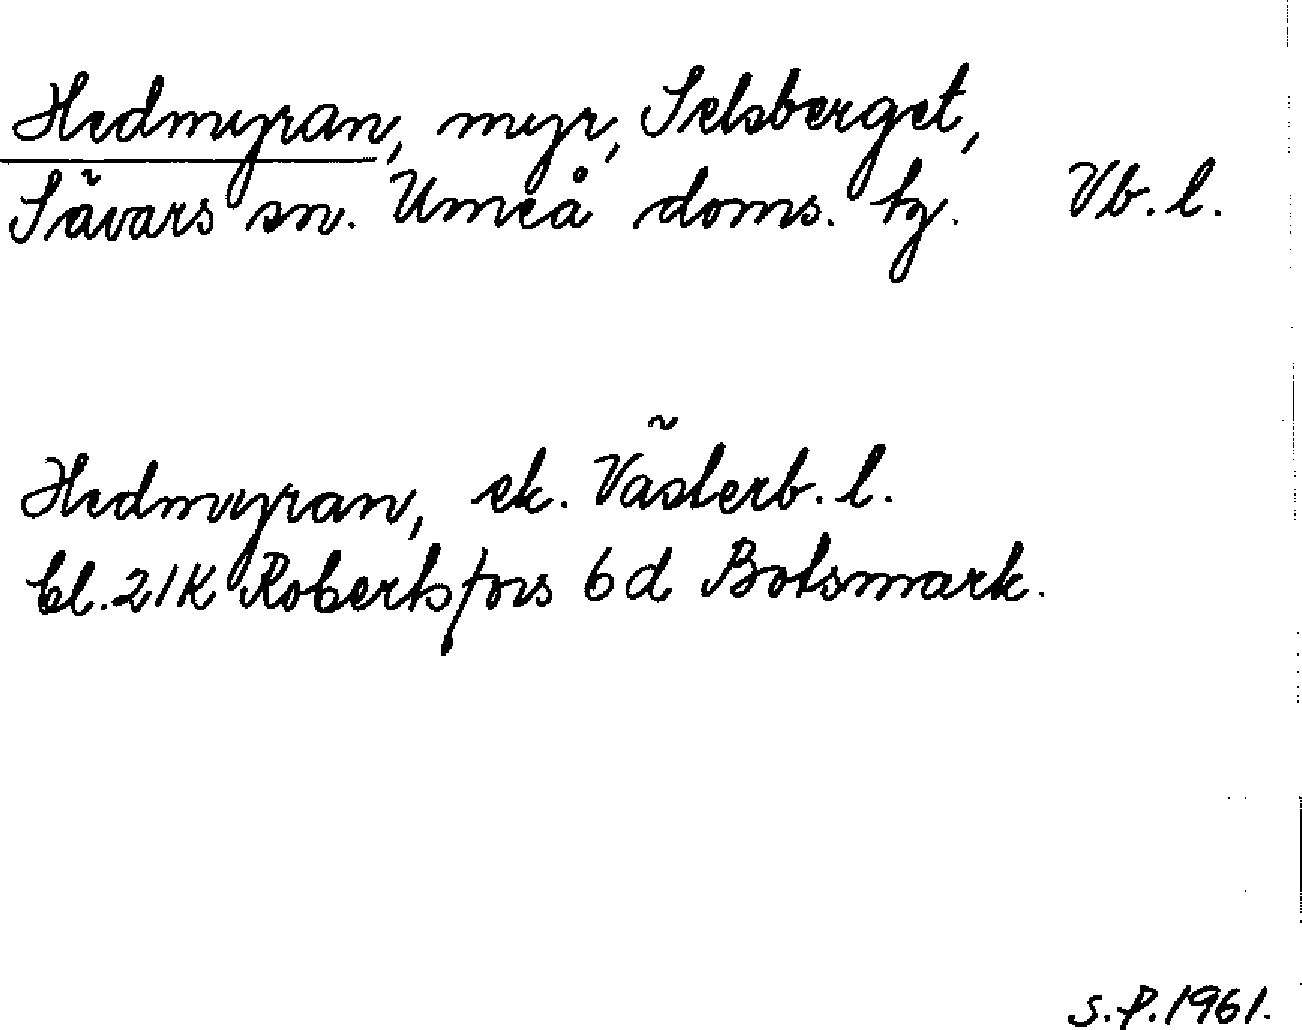 Hedmyran, myr, Selsberget,
Sävars sn. Umeå doms. tg. Vb. l.
Hedmyran, ek. Västerb. l.
bl. 21K Robertsfors 6d Botsmark.
S.P. 1961.